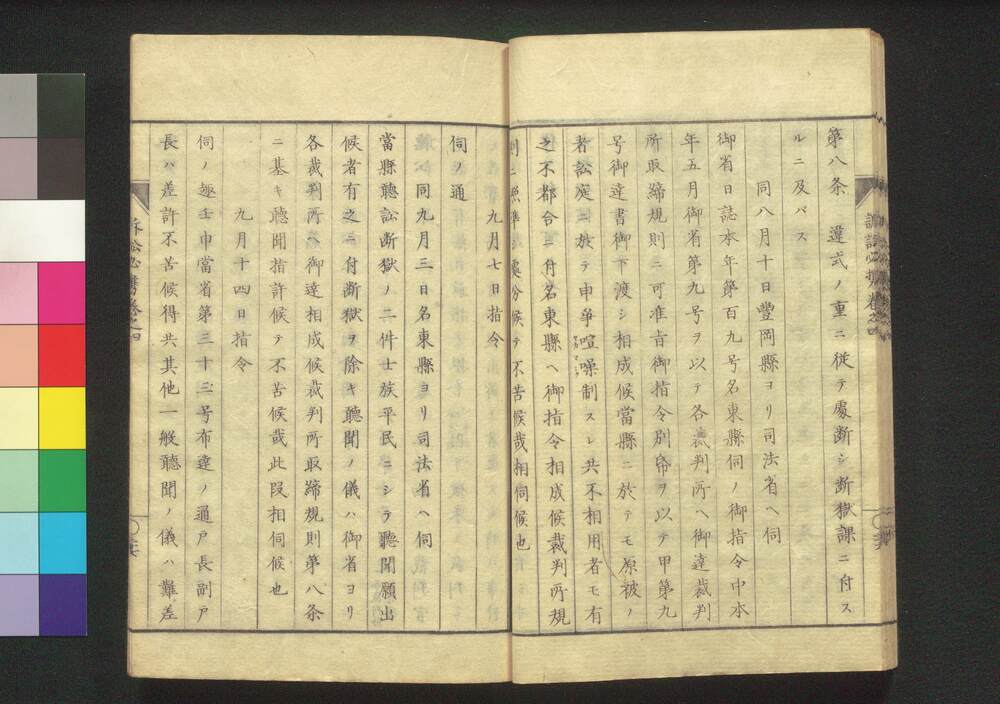 第八条 違式ノ重ニ従テ處断シ断獄課ニ付ス
ルニ及バス
同八月十日豐岡縣ヨリ司法省ヘ伺
御省日誌本年第百九号名東縣伺ノ御指令中本
年五月御省第九号ヲ以テ各裁判所ヘ御達裁判
所取締規則ニ可准旨御指令別帋ヲ以テ甲第九
号御達書御下渡シ相成候當縣ニ於テモ原被ノ
者訟庭ニ於テ申争喧噪制スレ共不相用者モ有
之不都合ニ付名東縣ヘ御指令相成候裁判所規
則ニ照準處分候テ不苦候哉相伺候也
九月七日指令
伺ノ通
同九月三日名東縣ヨリ司法省ヘ伺
當縣聽訟断獄ノ二件士族平民ニシテ聽聞願出
候者有之ニ付断獄ヲ除キ聽聞ノ儀ハ御省ヨリ
各裁判所ヘ御達相成候裁判所取締規則第八条
ニ基キ聽聞指許候テ不苦候哉此段相伺候也
九月十四日指令
伺ノ趣壬申當省第三十三号布達ノ通戸長副戸
長ハ差許不苦候得共其他一般聽聞ノ儀ハ難差
訴訟必携巻之四